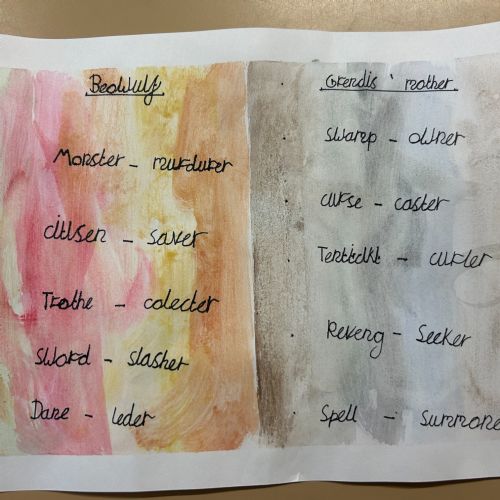 Beowulf
Monster - murdurer
citisen - saver
Trothe - colecter
sword - slasher
Dane - leder
Grendls ' mother
swamp - owner
curse - caster
Tentickl - curler
Reveng - Seeker
Spell - Summone